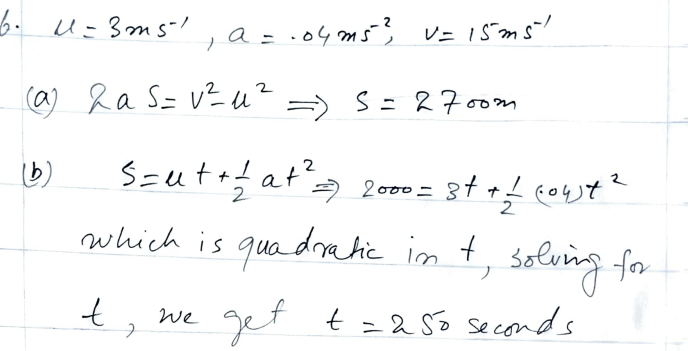 6. u = 3 m s⁻¹, a = .04 m s⁻², v = 15 m s⁻¹
(a) 2 a S = v² - u² ⟹ S = 2700m
(b) S = ut + ½ at² ⟹ 2000 = 3t + ½ (.04)t²
which is quadratic in t, solving for
t, we get t = 250 seconds